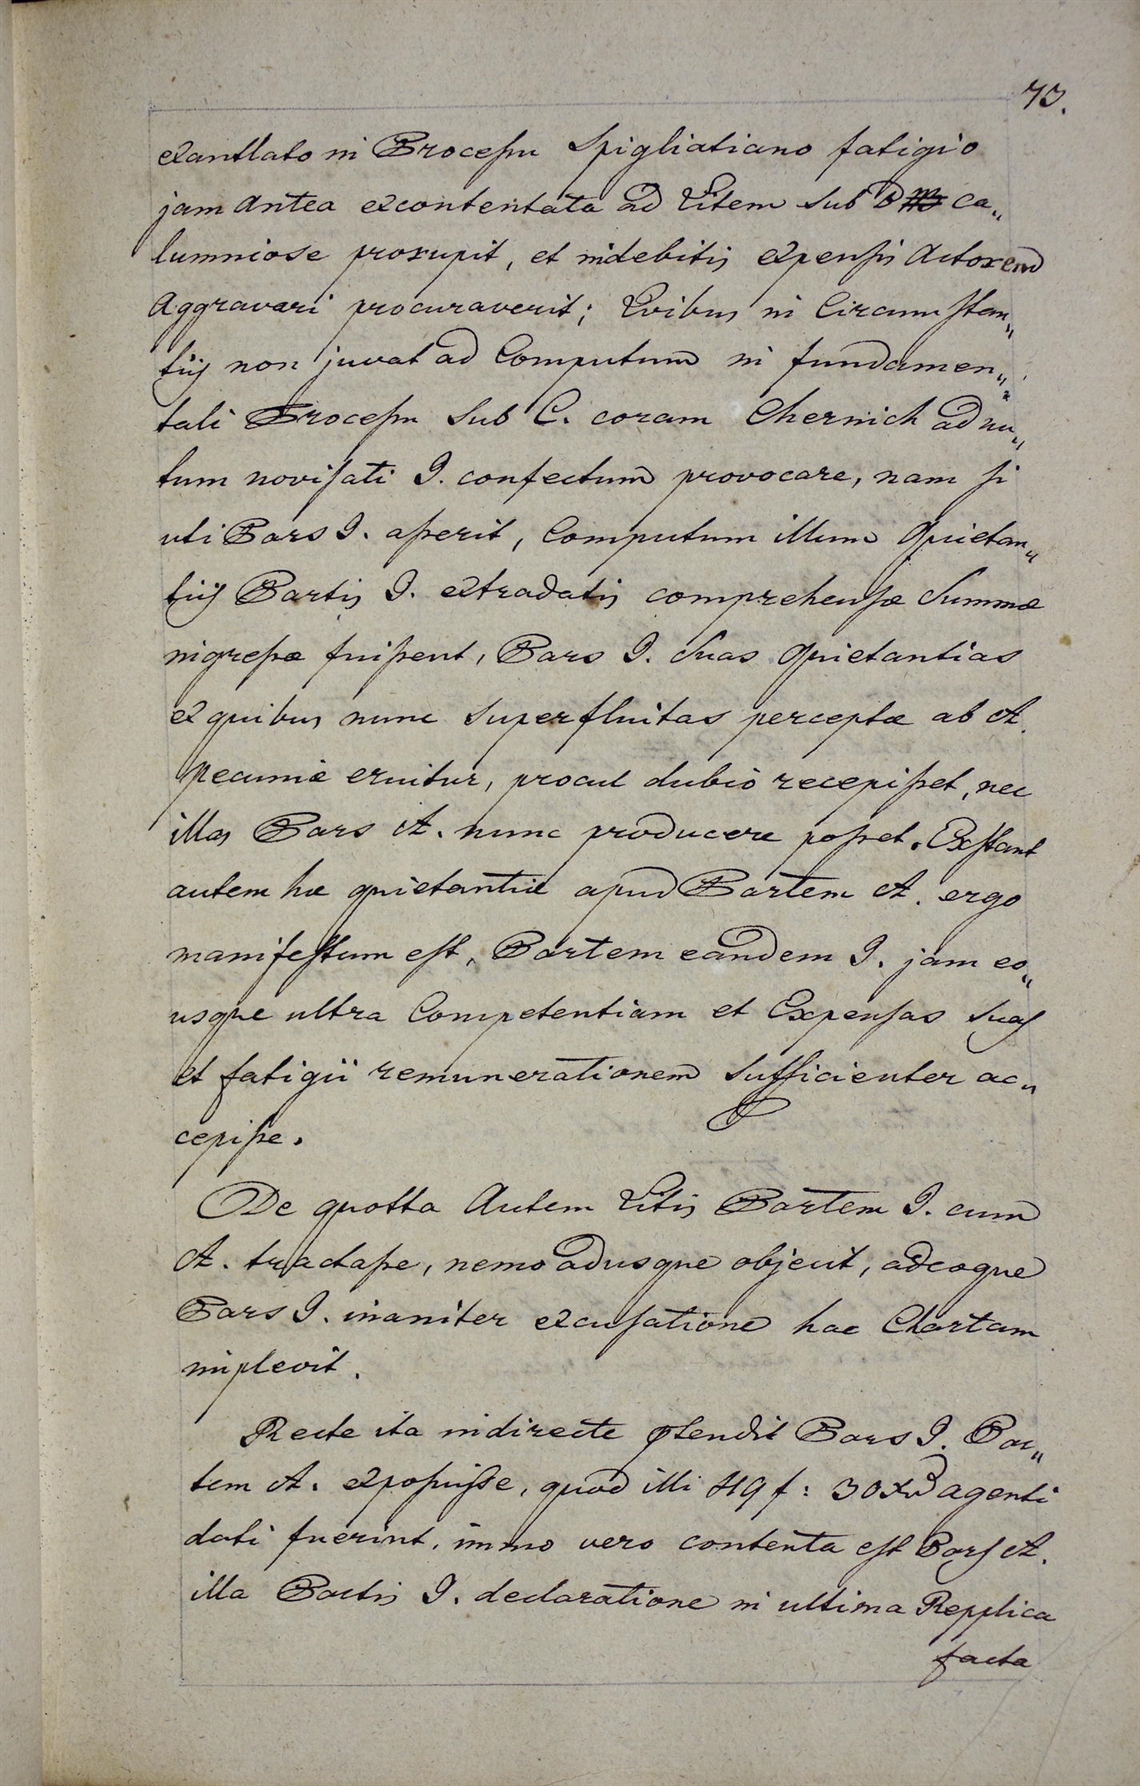 73.
exantlato in Processu Spigliatiano fatigio
jam antea excontentata ad Litem sub D ca„
lumniose prorupit, et indebitis expensis Actorem
Aggravari procuraverit; Quibus in Circumstan„
tiis non juvat ad Computum in fundamen„
tali Processu sub C. coram Chernich ad nu„
tum novisati I. confectum provocare, nam si
uti Pars I. asserit, Computum illum Quietan„
tiis Partis I. extradatis comprehensæ Summæ
ingressæ fuissent, Pars I. suas Quietantias
ex quibus nunc superfluitas perceptæ ab A.
pecuniæ eruitur, procul dubio recepisset, nec
illas Pars A. nunc producere posset. Exstant
autem hæ quietantiæ apud Partem A. ergo
manifestum est, Partem eandem I. jam eo„
usque ultra Competentiam et Expensas suas
et fatigii remunerationem sufficienter ac„
cepisse.
De quotta Autem Litis Partem I. cum
A. tractasse, nemo adusque objecit, adeoque
Pars I. inaniter excusatione hac Chartam
implevit.
Recte ita indirecte ptendit Pars I. Par„
tem A. exposuisse, quod illi 49 f: 30 xr agenti
dati fuerint, immo vero contenta est Pars A.
illa Partis I. declaratione in ultima Replica
facta